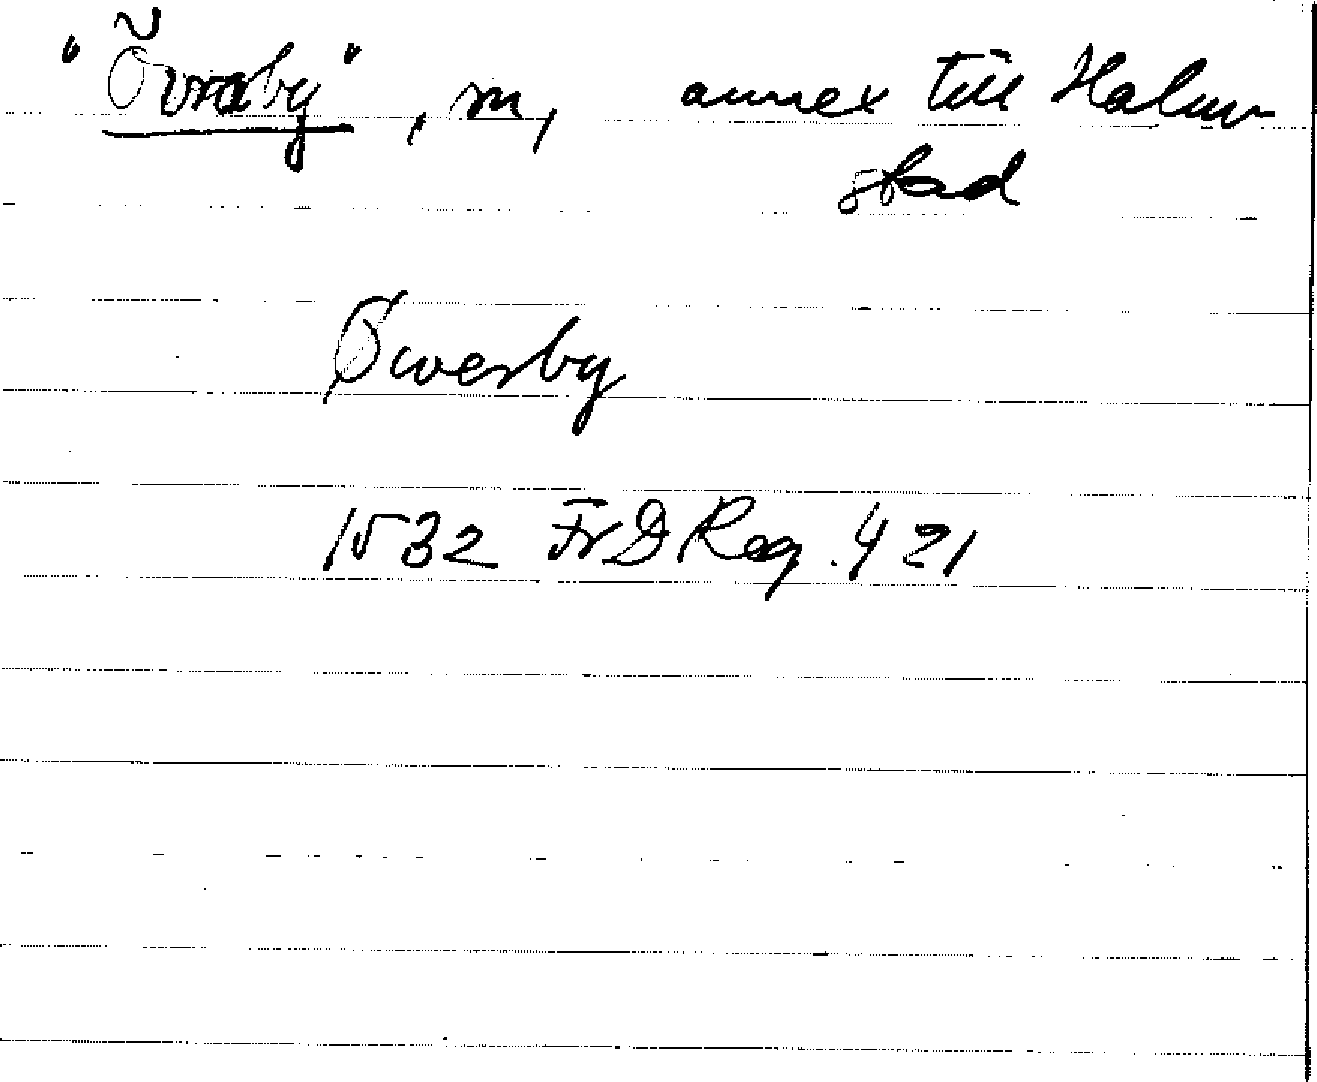 "Övraby", sn, annex till Halm-
stad
Øwerby
1532 FrDReg. 421